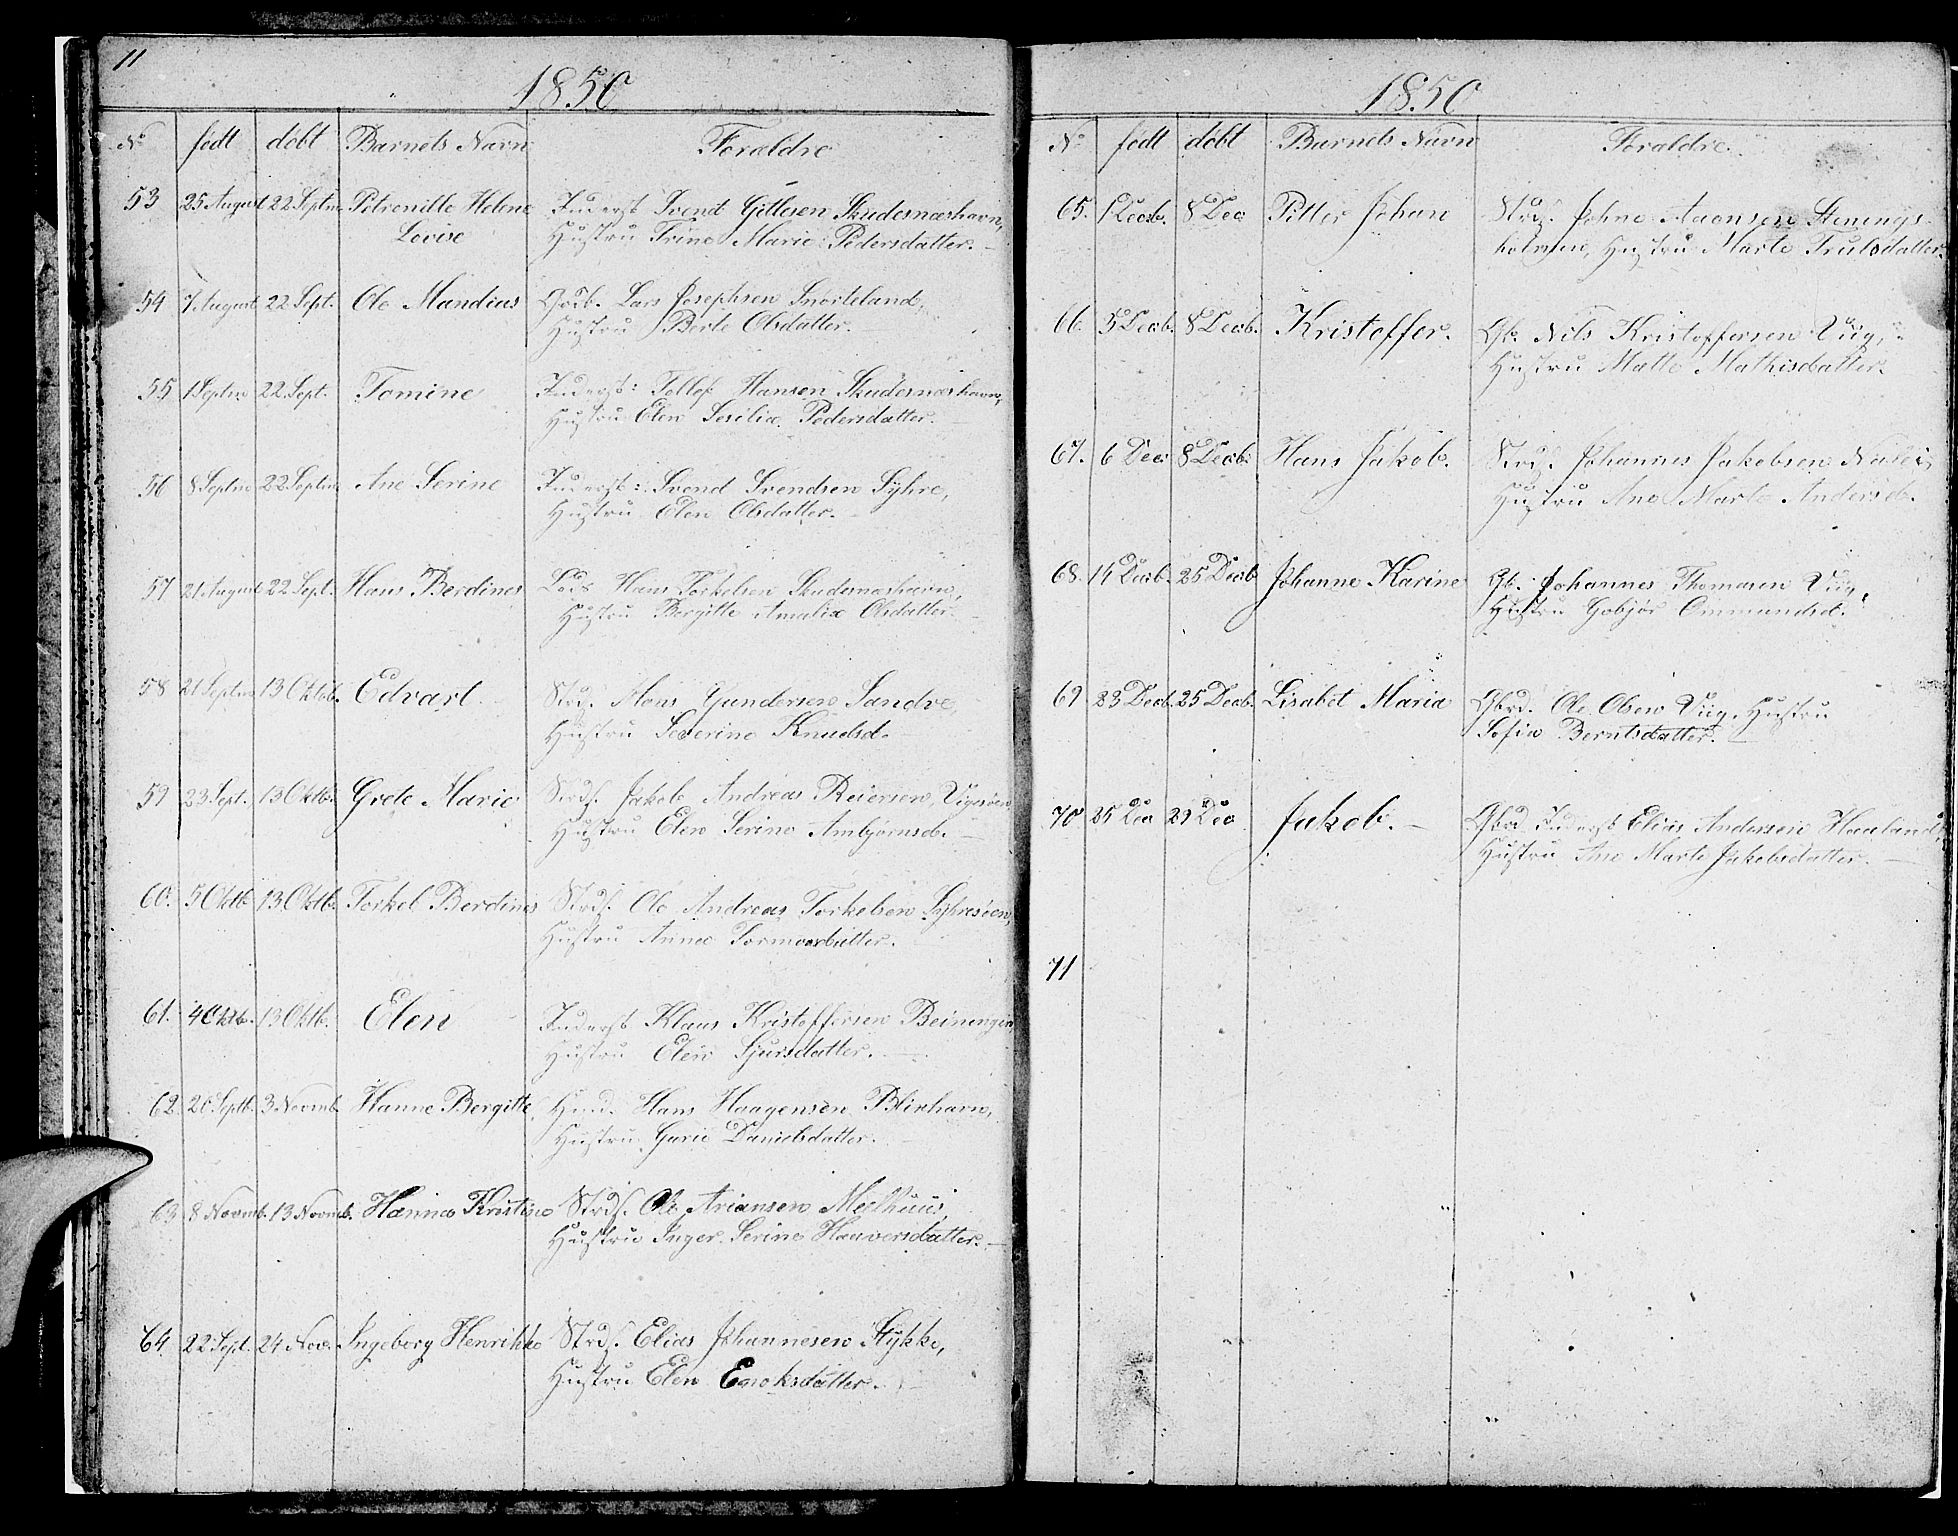 11
1850
No født døbt Barnets Navn Forældre
53 25 August 22 Septm Petronille Helene Inderst Svend Gitlesen Skudesnæshavn,
Lovise Hustru Trine Marie Pedersdatter.
54 7 August 22 Sept. Ole Mandius Gdb. Lars Josephsen Snørteland,
Hustru Berte Olsdatter.
55 1 Septm 22 Sept. Tomine Inderst: Tollef Hansen Skudesnæshavn,
Hustru Elen Sesilia Pedersdatter.
56 8 Septm 22 Septm Ane Serine Inderst: Svend Svendsen Syhre,
Hustru Elen Olsdatter.
57 21 August 22 Sept. Hans Berdines Lods Hans Torkelsen Skudesnæshavn,
Hustru Bergitte Amalia Olsdatter.
58 21 Septm 13 Oktob. Edvart Strds. Mons Gundersen Sandve
Hustru Severine Knudsd.
59 23 Sept. 13 Oktb. Grete Marie Strds. Jakob Andreas Reiersen, Vigsøen,
Hustru Elen Serine Ambjørnsd.
60. 5 Oktb 13 Oktb. Torkel Berdines Strds. Ole Andreas Torkelsen Syhresøen,
Hustru Anna Tormodsdatter.
61. 4 Oktb. 13 Oktb. Elen Inderst Klaus Kristoffersen Beiningen
Hustru Elen Sjursdatter.
62 20 Septb. 3 Novmb. Hanne Bergitte Hmd. Hans Haagensen Blixhavn,
Hustru Gurie Danielsdatter.
63 8 Novmb. 13 Novmb. Hanna Kristine Strds. Ole Ariansen Meelhuus,
Hustru Inger Serine Hauversdatter.
64 22 Sept. 24 Nov. Ingeborg Henrikke Strds. Elias Johannesen Stykke,
Hustru Elen Enoksdatter.
1850
No født døbt Barnets Navn Forældre
65. 1 Decb. 8 Dec Pitter Johan Strds. Johne Aaensen Stenings-
holmen, Hustru Marte Trulsdatter.
66. 5 Decb. 8 Decb. Kristoffer. Gb. Nils Kristoffersen Viig,
Hustru Malle Mathisdatter.
67. 6 Dec 8 Decb. Hans Jakob. Strds. Johannes Jakobsen Nalei,
Hustru Ane Marte Andersd.
68. 14 Decb. 25 Decb Johanne Karine Gb. Johannes Thomasen Viig,
Hustru Gobjør Ommundsd.
69 23 Decb. 25 Decb. Lisabet Maria Gbrd. Ole Olsen Viig, Hustru
Sofia Berntsdatter.
70 25 Dec 29 Dec Jakob. Gbrd Inderst Elias Andersen Haaland,
Hustru Ane Marte Jakobsdatter.
71